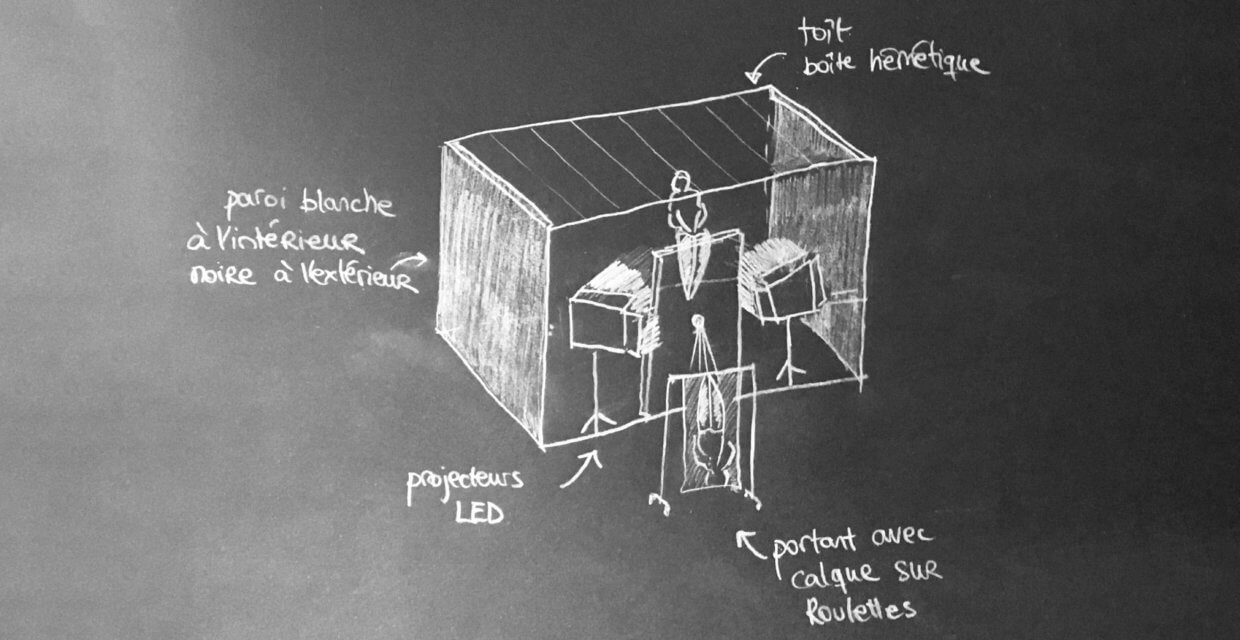 toît
boîte hermétique
paroi blanche
à l'intérieur
noire à l'extérieur
projecteurs
LED
portant avec
calque sur
Roulettes